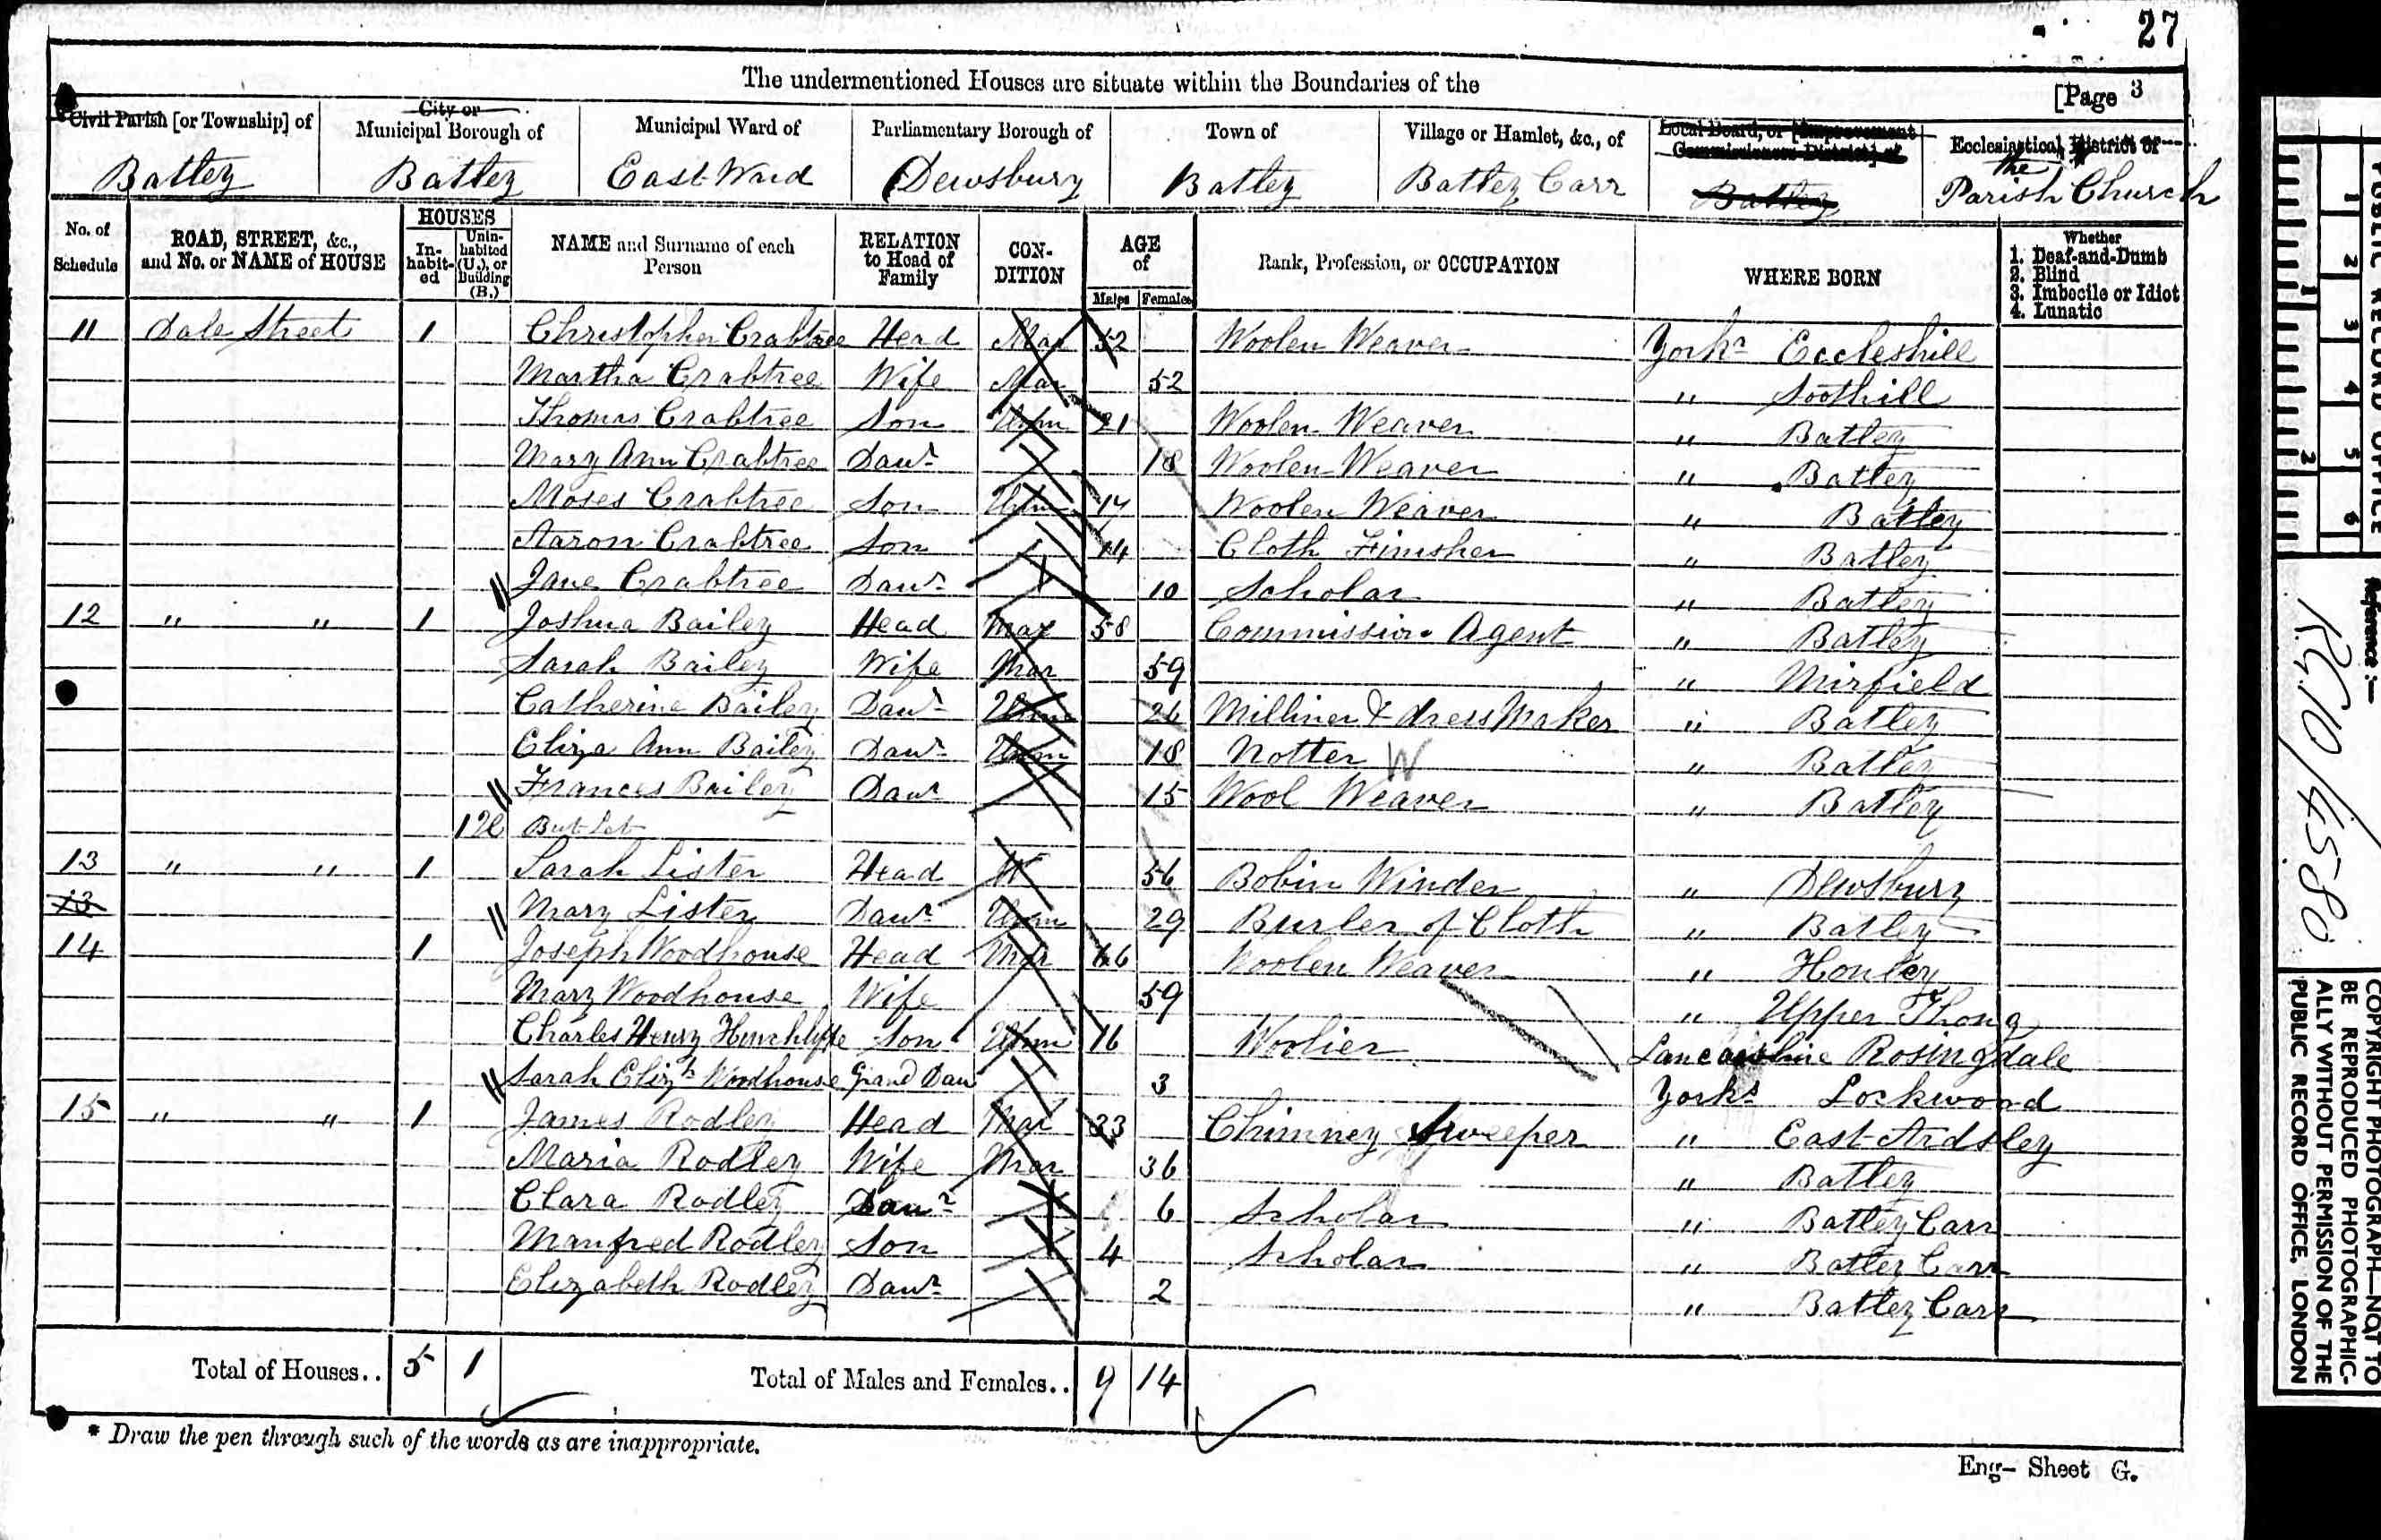 27
The undermentioned Houses are situate within the Boundaries of the
[Page 3
Civil Parish [or Township] of
City or Municipal Borough of
Municipal Ward of
Parliamentary Borough of
Town of
Village or Hamlet, &c., of
Local Board, or [Improvement Commissioners District] of
Ecclesiastical District of
Batley
Batley
East Ward
Dewsbury
Batley
Batley Carr
Batley
the Parish Church
No. of Schedule
ROAD, STREET, &c., and No. or NAME of HOUSE
HOUSES
In-habit-ed
Unin-habited (U.), or Building (B.)
NAME and Surname of each Person
RELATION to Head of Family
CON-DITION
AGE of
Males
Females
Rank, Profession, or OCCUPATION
WHERE BORN
Whether
1. Deaf-and-Dumb
2. Blind
3. Imbecile or Idiot
4. Lunatic
11 Dale Street 1 Christopher Crabtree Head Mar 52 Woolen Weaver Yorks Eccleshill
Martha Crabtree Wife Mar 52 " Soothill
Thomas Crabtree Son Unm 21 Woolen Weaver " Batley
Mary Ann Crabtree Daur 18 Woolen Weaver " Batley
Moses Crabtree Son Unm 17 Woolen Weaver " Batley
Aaron Crabtree Son 14 Cloth Finisher " Batley
Jane Crabtree Daur 10 Scholar " Batley
12 " " 1 Joshua Bailey Head Mar 58 Commission Agent " Batley
Sarah Bailey Wife Mar 59 " Mirfield
Catherine Bailey Daur Unm 26 Milliner & dress Maker " Batley
Eliza Ann Bailey Daur Unm 18 Notter W " Batley
Frances Bailey Daur 15 Wool Weaver " Batley
1 But Let
13 " " 1 Sarah Lister Head W 56 Bobin Winder " Dewsbury
13 Mary Lister Daur Unm 29 Burler of Cloth " Batley
14 1 Joseph Woodhouse Head Mar 66 Woolen Weaver " Honley
Mary Woodhouse Wife 59 " Upper Thong
Charles Henry Hinchlyffe Son Unm 16 Woolier Lancashire Rosingdale
Sarah Elizth Woodhouse Grand Daur 3 Yorks Lockwood
15 " " 1 James Rodley Head Mar 33 Chimney Sweeper " East Ardsley
Maria Rodley Wife Mar 36 " Batley
Clara Rodley Daur 6 Scholar " Batley Carr
Manfred Rodley Son 4 Scholar " Batley Carr
Elizabeth Rodley Daur 2 " Batley Carr
Total of Houses.. 5 1 Total of Males and Females.. 9 14
* Draw the pen through such of the words as are inappropriate.
Eng- Sheet G.
PUBLIC RECORD OFFICE
1 2 3 4 5 6
1 2
Reference:-
R.G. 10/4580
COPYRIGHT PHOTOGRAPH—NOT TO
BE REPRODUCED PHOTOGRAPHIC-
ALLY WITHOUT PERMISSION OF THE
PUBLIC RECORD OFFICE, LONDON